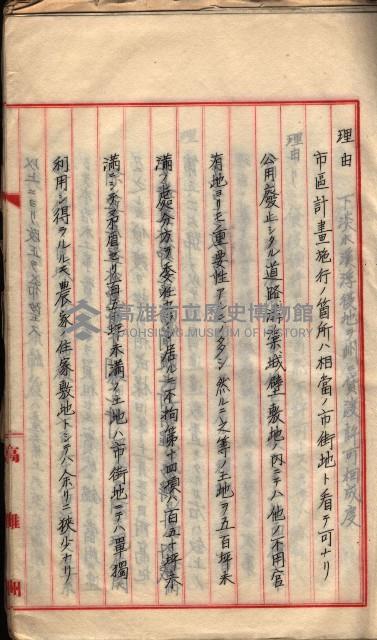 理由
市區計畫施行ノ箇所ハ相當ノ市街地ト看テ可ナリ
公用廢止シタル道路溝渠城壁敷地内ニテハ他ノ不用官
有地ヨリモ重要性アルモノタシ然ルニ之等ノ土地ヲ五百坪未
滿ノ處分方ヲ委任セラレ居ルニ不拘第十四項ハ百五十坪未
滿ニシテ矛盾セリ百五十坪未滿ノ土地ハ市街地ニテハ單獨
利用シ得ラルルモ農家ノ住家敷地トシテハ余リニ狹少ナリ
高雄州
高雄市立歷史博物館
KAOHSIUNG MUSEUM OF HISTORY